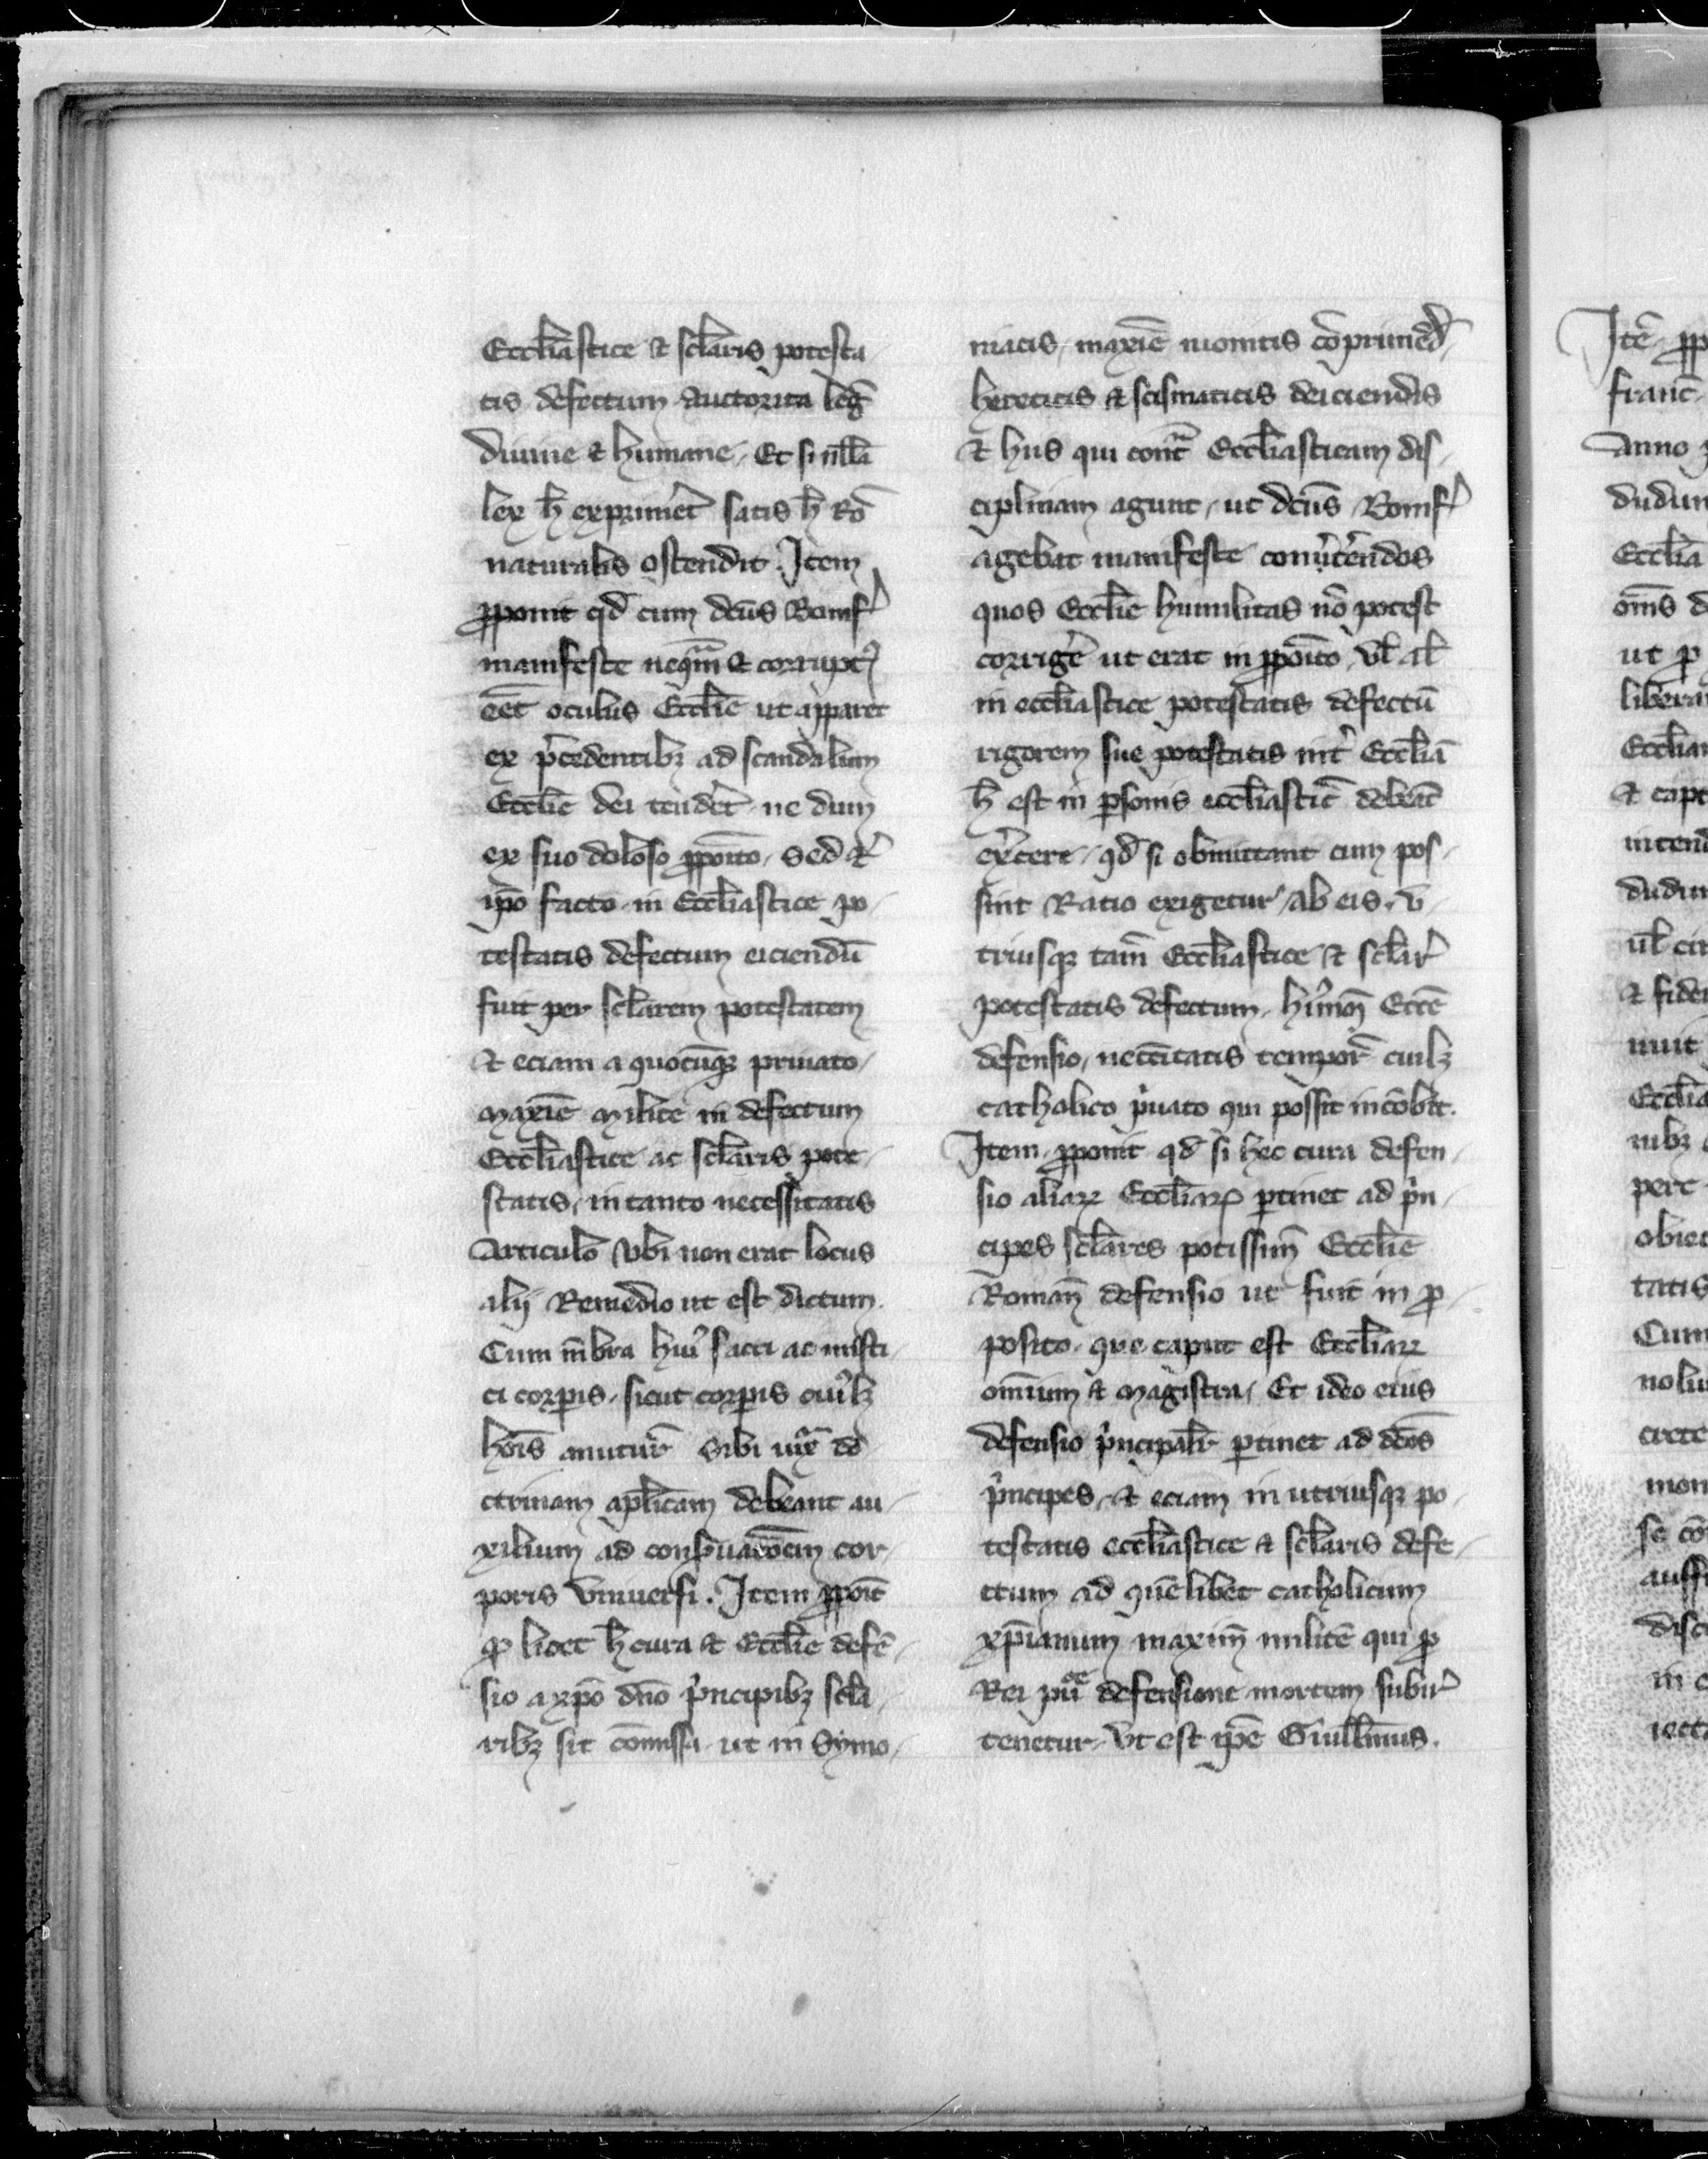 Eccl̄iastice et sc̄laris potesta
tis defectum auctorita leḡ
diuine et humane. Et si nll̄a
lex h̄ exprimet̄ satis h̄ Rō
naturalis ostendit. Item
ꝓponit qd̄ cum dc̄us Bonif
manifeste neqm̄ et corrupt9
eēt oculus Eccl̄ie ut apparet
ex p̄cedentibꝫ ad scandalum
Eccl̄ie dei tēdēt ne dum
ex suo doloso ꝓpōito, Sed et
ip̄o facto in Eccl̄iastice po
testatis defectum eiciendū
fuit per sc̄larem potestatem
et eciam a quocūqꝫ priuato,
maxīe milite in defectum
Eccl̄iastice ac sc̄laris pote
statis, in tanto necessitatis
Articulo vbi non erat locus
alij Remedio ut est dictum.
Cum mēbra hui9 sacri ac misti
ci corꝑis, sicut corꝑis cuilꝫ
hōis amutur̄ Sibi iux̄ do
ctrinam ap̄licam debeant au
xilium ad conseruacōem cor
poris vniuersi. Item ꝓpōit
ꝙ licet h̄ cura et Eccl̄ie defē
sio a xp̄o dn̄o p̄ncipibꝫ sc̄la
ribꝫ sit cōmissa ut in Symo
niacis, maxīe monitis cōprimēd
hereticis et scismaticis deiciendis
et hiis qui cont̄ Eccl̄iasticam dis
ciplinam agunt, ut dc̄us Bonif
agebat manifeste conu̓tēndos
quos Eccl̄ie humilitas nō potest
corrigē ut erat in ꝓpōito, vl̄ al̄
in eccl̄iastice potestatis defectū
rigorem sue potestatis int̄ Eccl̄iā
h̄ est in ꝑsonis eccl̄iastic̄ debeāt
exercere, qd̄ si obmittant cum pos
sint Ratio exigetur ab eis. v
triusqꝫ tam̄ Eccl̄iastice et sc̄lar̄
potestatis defectum, hm̄oi Ecc̄e
defensio, nec̄citatis tempor̄ cuilꝫ
catholico p̄uato qui possit incōbit.
Item ꝓponit qd̄ si hec cura defen
sio aliarꝝ Eccl̄iarꝝ ꝑtinet ad p̄n
cipes sc̄lares potissim̄ Eccl̄ie
Roman̄ defensio ut fuit in ꝓ
posito, que caput est Eccl̄iarꝝ
omnium et magistra, Et ideo eius
defensio p̄ncipalr̄ ꝑtinet ad dc̄os
p̄ncipes, et eciam in utriusqꝫ po
testatis eccl̄iastice et sc̄laris defe
ctum ad quēlibet catholicum
xp̄ianum maxim̄ militē qui ꝓ
Rei pu̅c̅e defensione mortem subir̄
tenetur, vt est ip̄e Guill̄mus.
Itē ꝓp
franc̄
Anno
dudum
Eccl̄ia
om̄s d
ut ꝑ
liberar
Eccl̄iam
et capt
intend
dudum
vl̄ cir
et fidei
nuit
Eccl̄ia
nibꝫ
pert
obiec
tatis
Cum
nolui
crete
mon
se cō
auff
disc
in e
iecta